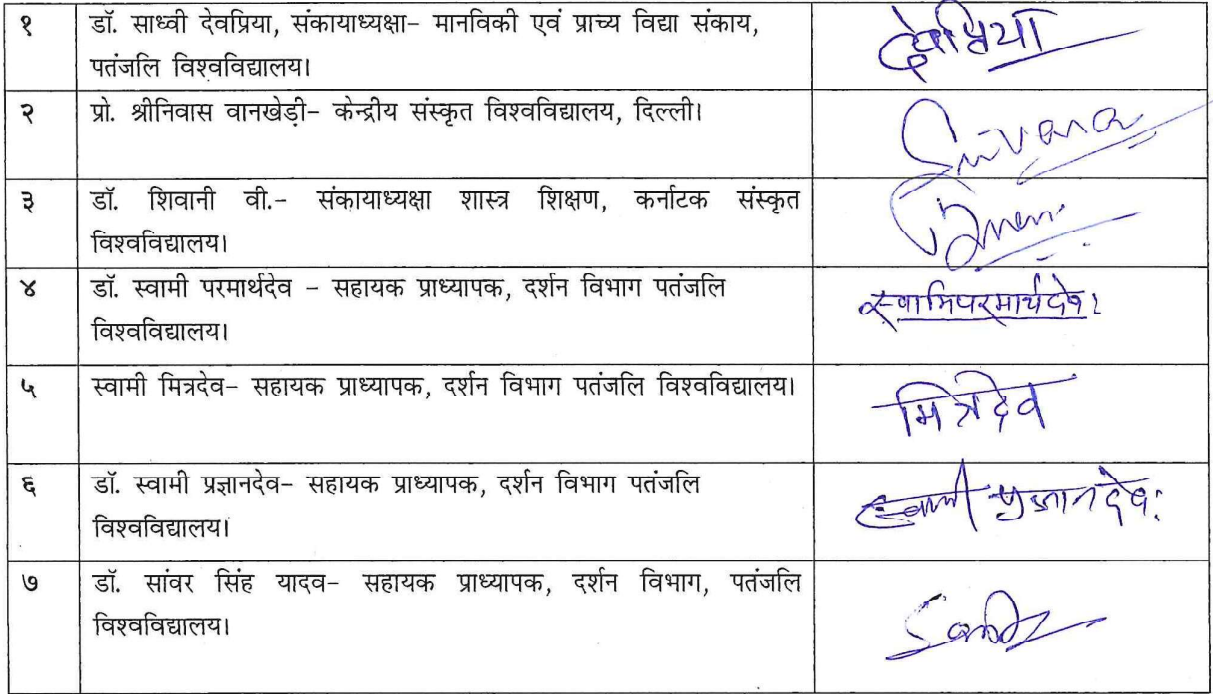 १ डॉ. साध्वी देवप्रिया, संकायाध्यक्षा– मानविकी एवं प्राच्य विद्या संकाय,
पतंजलि विश्वविद्यालय।
देवप्रिया
२ प्रो. श्रीनिवास वानखेड़ी– केन्द्रीय संस्कृत विश्वविद्यालय, दिल्ली।
३ डॉ. शिवानी वी.– संकायाध्यक्षा शास्त्र शिक्षण, कर्नाटक संस्कृत
विश्वविद्यालय।
४ डॉ. स्वामी परमार्थदेव – सहायक प्राध्यापक, दर्शन विभाग पतंजलि
विश्वविद्यालय।
स्वामिपरमार्थदेवः
५ स्वामी मित्रदेव– सहायक प्राध्यापक, दर्शन विभाग पतंजलि विश्वविद्यालय।
मित्रदेव
६ डॉ. स्वामी प्रज्ञानदेव– सहायक प्राध्यापक, दर्शन विभाग पतंजलि
विश्वविद्यालय।
स्वामी प्रज्ञानदेवः
७ डॉ. सांवर सिंह यादव– सहायक प्राध्यापक, दर्शन विभाग, पतंजलि
विश्वविद्यालय।